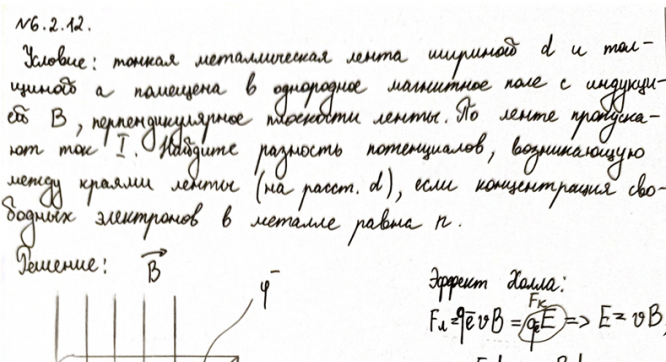 №6.2.12.
Условие: тонкая металлическая лента шириной d и тол-
щиной a помещена в однородное магнитное поле с индукци-
ей B, перпендикулярное плоскости ленты. По ленте пропуска-
ют ток I. Найдите разность потенциалов, возникающую
между краями ленты (на расст. d), если концентрация сво-
бодных электронов в металле равна n.
Решение: B
φ⁻
Эффект Холла:
Fк
Fл = qē v B = qE => E = vB,